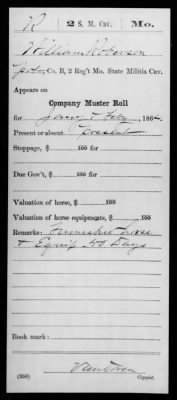 R | 2 S. M. Cav. | Mo.
William Roberson
Co. B, 2 Reg't Mo. State Militia Cav.
Appears on
Company Muster Roll
for Jan & Feb, 1864.
Present or absent Present
Stoppage, $ 100 for
Due Gov't, $ 100 for
Valuation of horse, $ 100
Valuation of horse equipments, $ 100
Remarks: Furnished horse
& Equip 55 Days
Book mark:
(358)
Copyist.